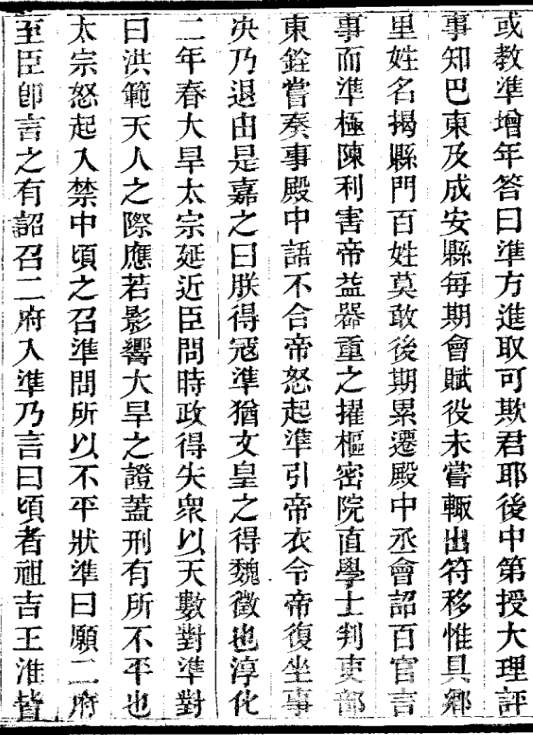 或教準增年答曰準方進取可欺君耶後中第授大理評
事知巴東及成安縣每期會賦役未嘗輙出符移惟具鄉
里姓名揭縣門百姓莫敢後期累遷殿中丞會詔百官言
事而準極陳利害帝益器重之擢樞密院直學士判吏部
東銓嘗奏事殿中語不合帝怒起準引帝衣令帝復坐事
決乃退由是嘉之曰朕得冦準猶文皇之得魏徵也淳化
二年春大旱太宗延近臣問時政得失衆以天數對準對
曰洪範天人之際應若影響大旱之證蓋刑有所不平也
太宗怒起入禁中頃之召準問所以不平狀準曰願二府
至臣卽言之有詔召二府入準乃言曰頃者祖吉王淮皆